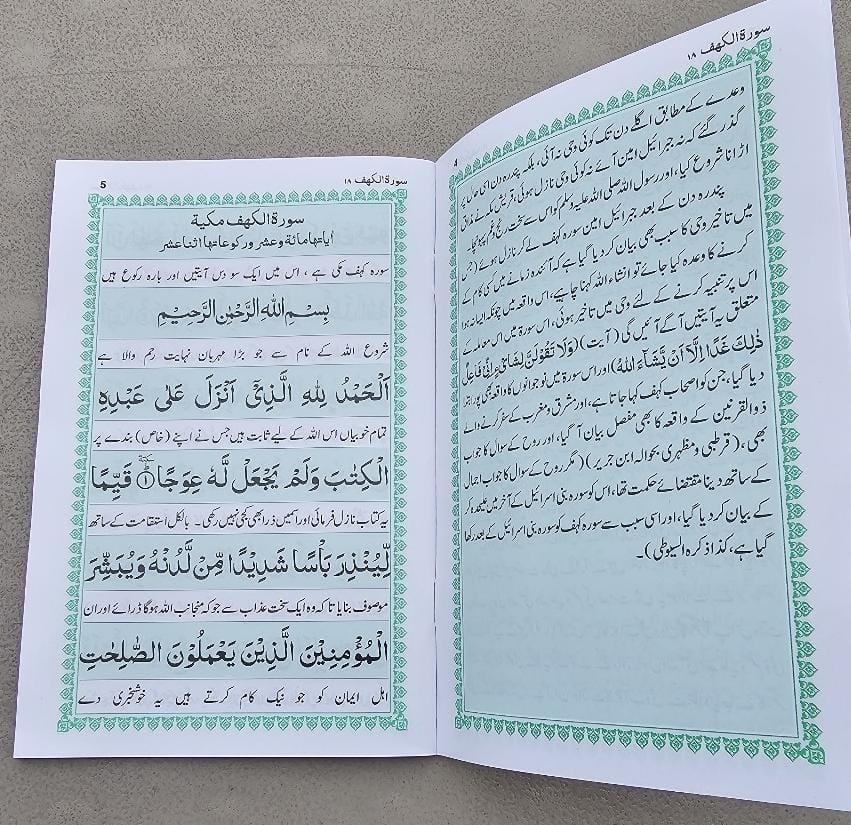 سورة الكهف ١٨
4
وعدے کے مطابق اگلے دن تک کوئی وحی نہ آئی، بلکہ پندرہ دن اسی حال پر
گذر گئے کہ نہ جبرائیل امین آئے نہ کوئی وحی نازل ہوئی، قریش مکہ نے مذاق
اڑانا شروع کیا، اور رسول اللہ صلی اللہ علیہ وسلم کو اس سے سخت رنج و غم پہنچا۔
پندرہ دن کے بعد جبرائیل امین سورہ کہف لے کر نازل ہوئے (جس
میں تاخیر وحی کا سبب بھی بیان کر دیا گیا ہے کہ آئندہ زمانے میں کسی کام کے
کرنے کا وعدہ کیا جائے تو انشاء اللہ کہنا چاہیے، اس واقعہ میں چونکہ ایسا نہ ہوا
اس پر تنبیہ کرنے کے لئے وحی میں تاخیر ہوئی، اس سورة میں اس معاملے کے
متعلق یہ آیتیں آگے آئیں گی (آیت) (وَلَا تَقُوْلَنَّ لِشَایْءٍ اِنِّیْ فَاعِلٌ
ذٰلِكَ غَدًا اِلَّا اَنْ يَّشَآءَ اللّٰهُ) اور اس سورة میں نوجوانوں کا واقعہ بھی پورا بتا
دیا گیا، جن کو اصحاب کہف کہا جاتا ہے، اور مشرق و مغرب کے سفر کرنے والے
ذوالقرنین کے واقعہ کا بھی مفصل بیان آ گیا، اور روح کے سوال کا جواب
بھی، (قرطبی و مظہری بحوالہ ابن جریر) (مگر روح کے سوال کا جواب اجمال
کے ساتھ دینا مقتضائے حکمت تھا، اس کو سورہ بنی اسرائیل کے آخر میں علیحدہ کر
کے بیان کر دیا گیا، اور اسی سبب سے سورہ کہف کو سورہ بنی اسرائیل کے بعد رکھا
گیا ہے، کذا ذکرہ السیوطی)۔
سورة الكهف ١٨
5
سورة الكهف مكية
اياتها مائة وعشر وركوعاتها اثنا عشر
سورہ کہف مکی ہے ، اس میں ایک سو دس آیتیں اور بارہ رکوع ہیں
بِسْمِ اللّٰهِ الرَّحْمٰنِ الرَّحِيْمِ
شروع اللہ کے نام سے جو بڑا مہربان نہایت رحم والا ہے
اَلْحَمْدُ لِلّٰهِ الَّذِيْٓ اَنْزَلَ عَلٰى عَبْدِهِ
تمام خوبیاں اس اللہ کے لیے ثابت ہیں جس نے اپنے (خاص) بندے پر
الْكِتٰبَ وَلَمْ يَجْعَلْ لَّهٗ عِوَجًا ۝١ قَيِّمًا
یہ کتاب نازل فرمائی اور اسمیں ذرا بھی کجی نہیں رکھی۔ بالکل استقامت کے ساتھ
لِّيُنْذِرَ بَاْسًا شَدِيْدًا مِّنْ لَّدُنْهُ وَيُبَشِّرَ
موصوف بنایا تا کہ وہ ایک سخت عذاب سے جو کہ منجانب اللہ ہوگا ڈرائے اور ان
الْمُؤْمِنِيْنَ الَّذِيْنَ يَعْمَلُوْنَ الصّٰلِحٰتِ
اہل ایمان کو جو نیک کام کرتے ہیں یہ خوشخبری دے